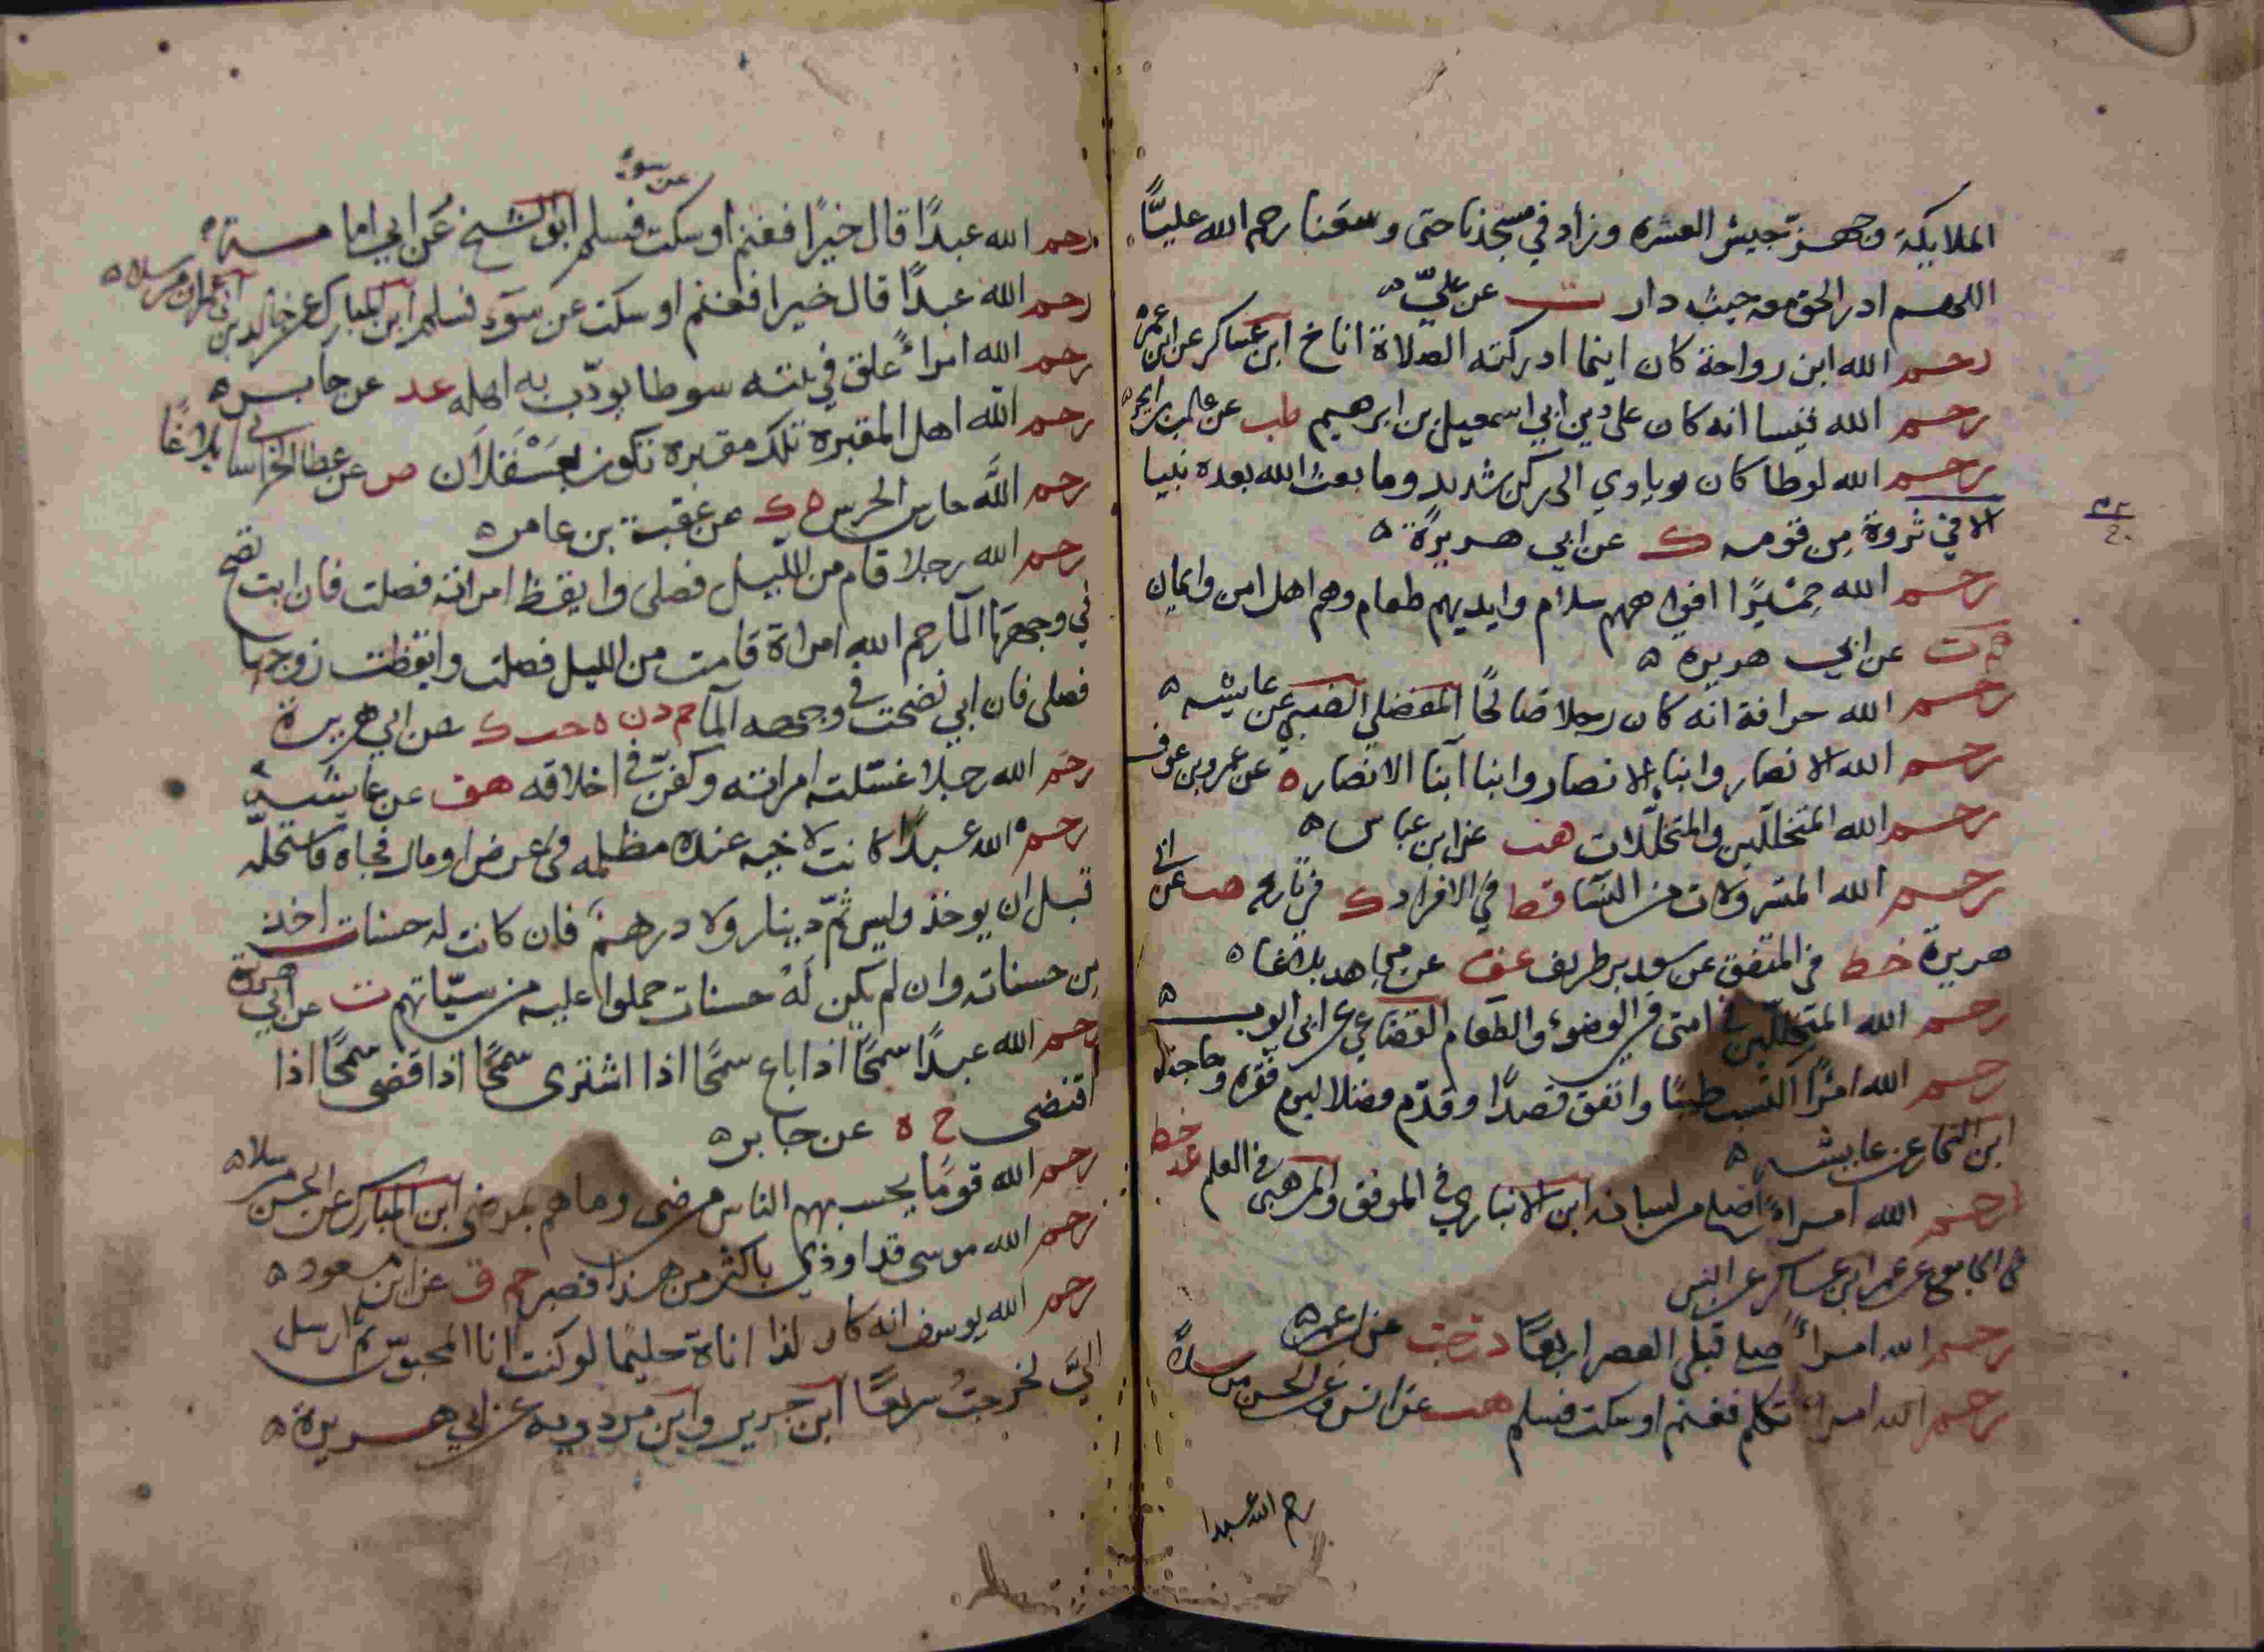 الملايكة وجهز جيش العشره وزاد في مسجدنا حتى وسعنا رحم الله عليًّا
اللهم ادر الحق معه حيث دار ت عن عليّ ه
رحم الله ابن رواحة كان اينما ادركته الصلاة اناخ ابن عساكر عن ابن عمر ه
رحم الله قيسا انه كان على دين ابي اسمعيل بن ابرهيم طب عن غالب بن ابجر ه
رحم الله لوطا كان ياوي الى ركن شديد وما بعث الله بعده نبيا
الا في ثروة من قومه ك عن ابي هريرة ه
رحم الله حميرًا افواههم سلام وايديهم طعام وهم اهل امن وايمان
حم ت عن ابي هريرة ه
رحم الله خرافة انه كان رجلا صالحًا المفضل الضبي عن عايشه ه
رحم الله الانصار وابنا الانصار وابنا ابنا الانصار ه عن عمرو بن عوف
رحم الله المتخللين والمتخللات هب عن ابن عباس ه
رحم الله المتسرولات من النسا قط في الافراد ك في تاريخه هب عن ابي
هريرة خط في المتفق عن سعد بن طريف عق عن مجاهد بلاغا ه
رحم الله المتخللين من امتى في الوضوء والطعام القضاعي عن ابي ايوب ه
رحم الله امرًا اكتسب طيبًا وانفق قصدًا وقدّم فضلا ليوم فقره وحاجته
ابن النجار عن عايشه ه
رحم الله امراءً اصلح من لسانه ابن الانباري في الموقف والمرهبى في العلم عد خط
في الجامع عن عمر ابن عساكر عن انس
رحم الله امراءً صلى قبل العصر اربعًا د ت حب عن ابن عمر ه
رحم الله امراءً تكلم فغنم او سكت فسلم هب عن انس وعن الحسن مرسلاً
رحم الله عبدا
عن سوء
رحم الله عبدًا قال خيرًا فغنم او سكت فسلم ابو الشيخ عن ابي امامة ه
رحم الله عبدًا قال خيرا فغنم او سكت عن سوء فسلم ابن المبارك عن خالد بن ابي عمران مرسلا ه
رحم الله امراءً علق في بيته سوطا يودّب به اهله عد عن جابر ه
رحم الله اهل المقبرة تلك مقبرة تكون بعَسْقَلاَن ص عن عطا الخراساني بلاغًا
رحم الله حارس الحرس ه ك عن عقبة بن عامر ه
رحم الله رجلا قام من الليل فصلى وايقظ امراته فصلت فان ابت نضح
في وجهها الما رحم الله امراة قامت من الليل فصلت وايقظت زوجها
فصلى فان ابي نضحت في وجهه الما حم د ن ه حب ك عن ابي هريرة
رحم الله رجلا غسّلته امراته وكفّن في اخلاقه هق عن عايشة
رحم الله عبدًا كانت لاخيه عنده مظلمه في عرض او مال فجاه فاستحله
قبل ان يوخذ وليس ثمّ دينار ولا درهم فان كانت له حسنات اخذ
من حسناته وان لم يكن لهُ حسنات حملوا عليه من سيّاتهم ت عن ابي هريرة
رحم الله عبدًا سمحًا اذا باع سمحًا اذا اشترى سمحًا اذا قضى سمحًا اذا
اقتضى خ ه عن جابر ه
رحم الله قومًا يحسبهم الناس مرضى وما هم بمرضى ابن المبارك عن الحسن مرسلا ه
رحم الله موسى قد اوذي باكثر من هذا فصبر حم ق عن ابن مسعود ه
رحم الله يوسف انه كان لذا اناة حليمًا لو كنت انا المحبوس ثم ارسل
اليَّ لخرجتُ سريعًا ابن جرير وابن مردويه عن ابي هريرة ه